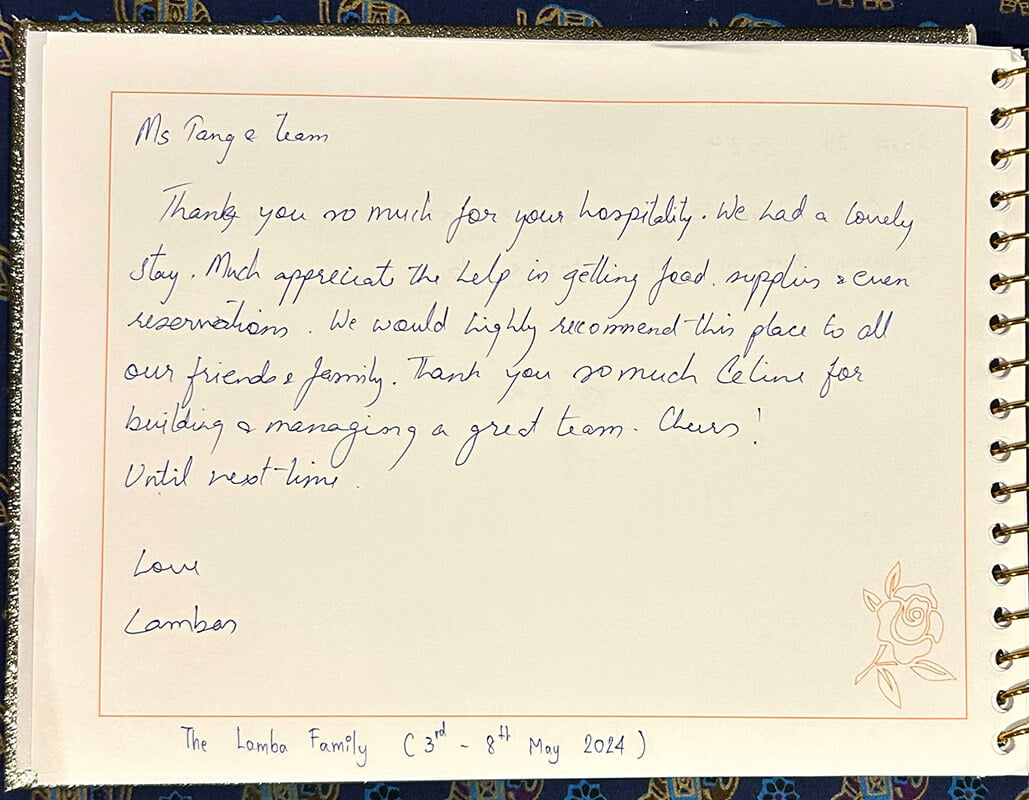 Ms Tang & Team
Thank you so much for your hospitality. We had a lovely
stay. Much appreciate the help in getting food. supplies & even
reservations. We would highly recommend this place to all
our friends & family. Thank you so much Celine for
building & managing a great team. Cheers!
Until next time.
Love
Lambas
The Lamba Family (3rd - 8th May 2024)